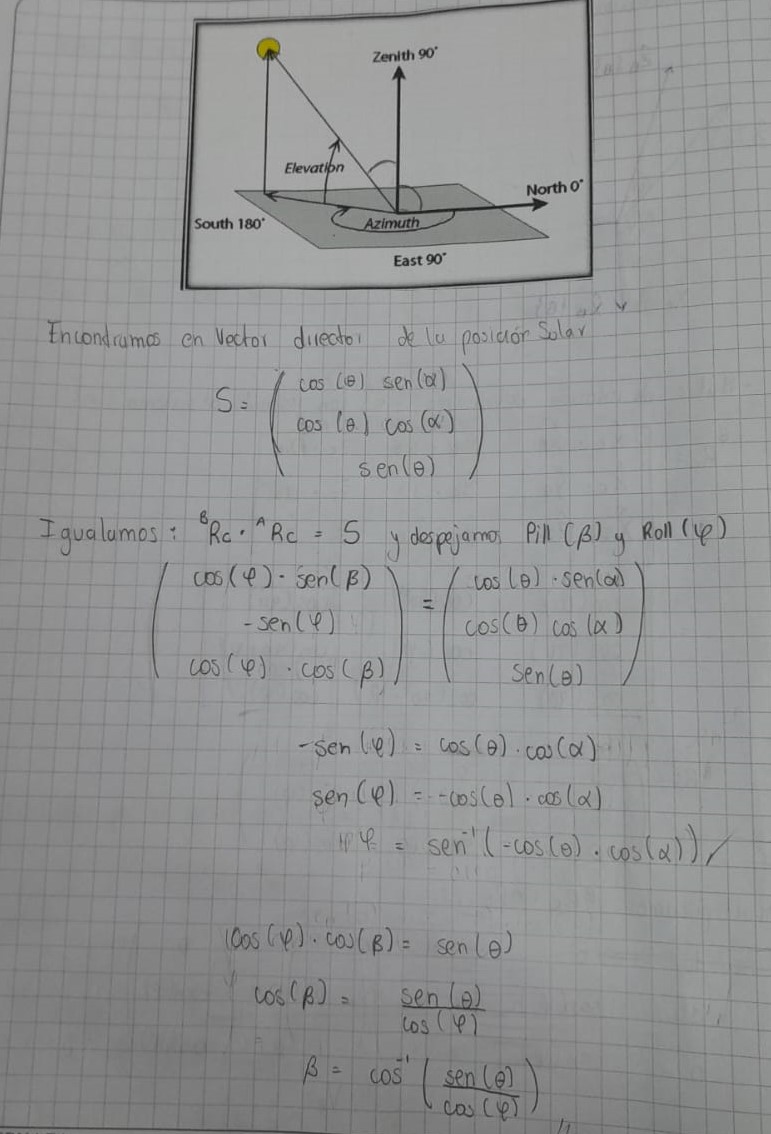 Zenith 90°
Elevation
North 0°
South 180°
Azimuth
East 90°
Encontramos en Vector director de la posición Solar
S = ( cos (θ) sen(α)
cos (θ) cos(α)
sen(θ) )
Igualamos: ᴮRc · ᴬRc = S y despejamos Pill (β) y Roll (φ)
( cos(φ) · sen(β) ) = ( cos(θ) · sen(α) )
- sen(φ) cos(θ) cos(α)
cos(φ) · cos(β) sen(θ)
-sen(φ) = cos(θ) · cos(α)
sen(φ) = -cos(θ) · cos(α)
φ = sen⁻¹(-cos(θ) · cos(α))
cos(φ) · cos(β) = sen(θ)
cos(β) = sen(θ) / cos(φ)
β = cos⁻¹ ( sen(θ) / cos(φ) )